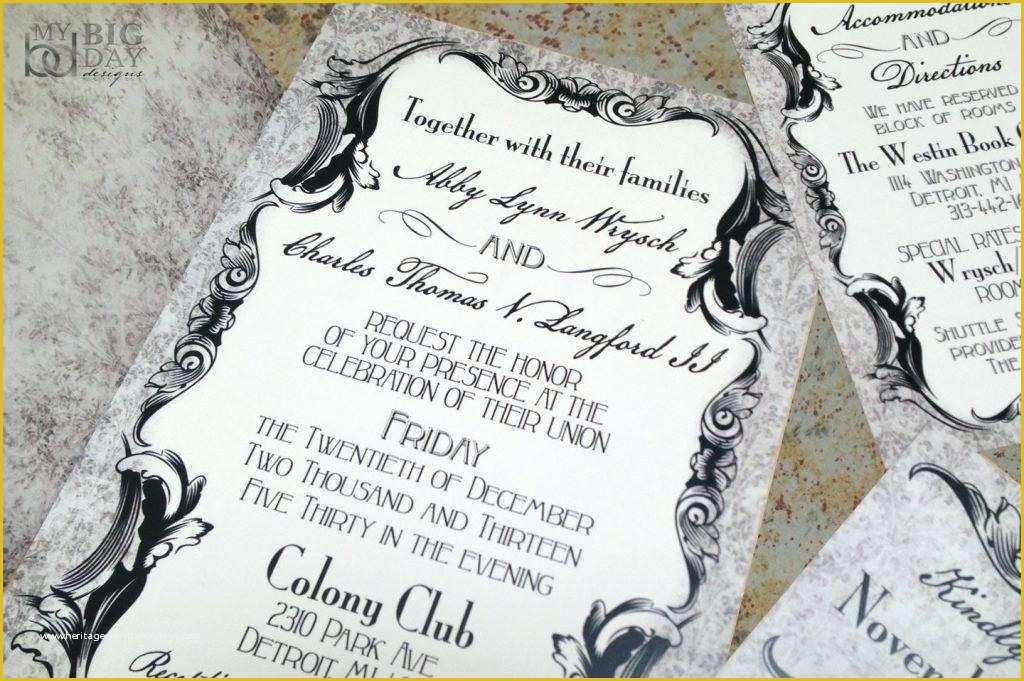 MY BIG
bd DAY
designs
Together with their families
Abby Lynn Wrysch
AND
Charles Thomas N. Langford II
REQUEST THE HONOR
OF YOUR PRESENCE AT THE
CELEBRATION OF THEIR UNION
FRIDAY
THE TWENTIETH OF DECEMBER
TWO THOUSAND AND THIRTEEN
FIVE THIRTY IN THE EVENING
Colony Club
2310 PARK AVE
DETROIT, MI
Accommodations
AND
Directions
WE HAVE RESERVED
BLOCK OF ROOMS
The Westin Book
1114 WASHINGTON
DETROIT, MI
313-442-16
SPECIAL RATES
Wrysch/
ROOM
SHUTTLE
PROVIDE
THE
Kindly